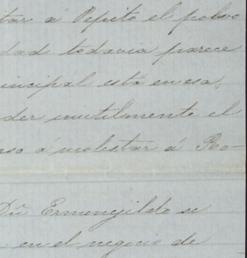 tar á Pepito el polvo
dad todavia parece
incipal está en esa,
der inutilmente el
so á molestar á Ro-
Dn Ermenejildo se
en el negocio de